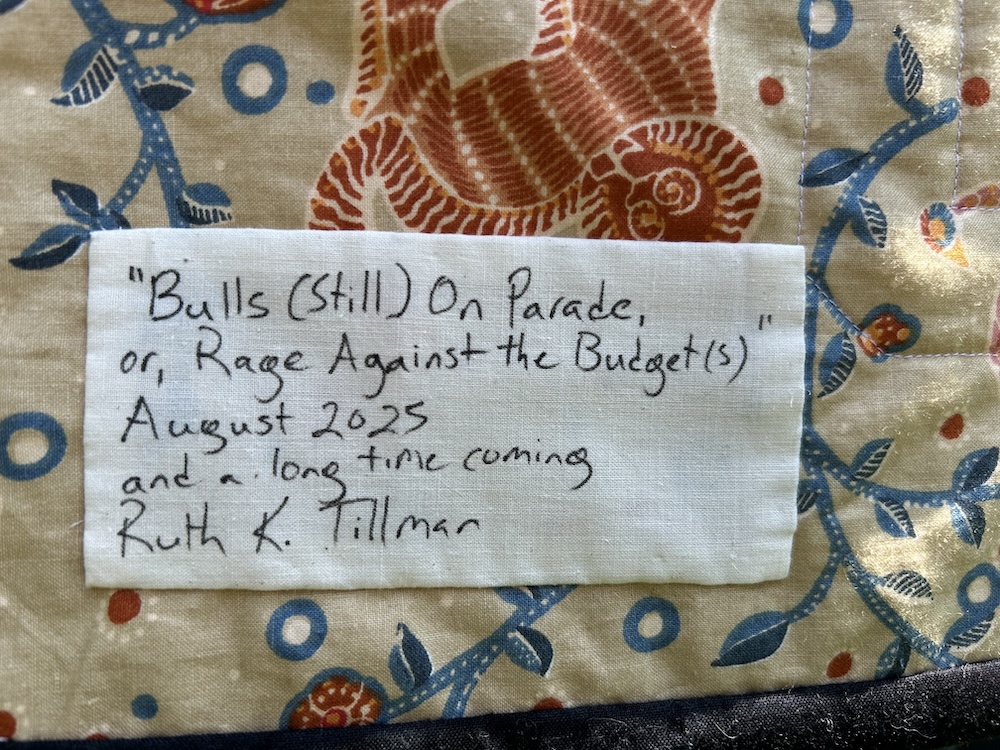 "Bulls (Still) On Parade,
or, Rage Against the Budget(s)"
August 2025
and a long time coming
Ruth K. Tillman